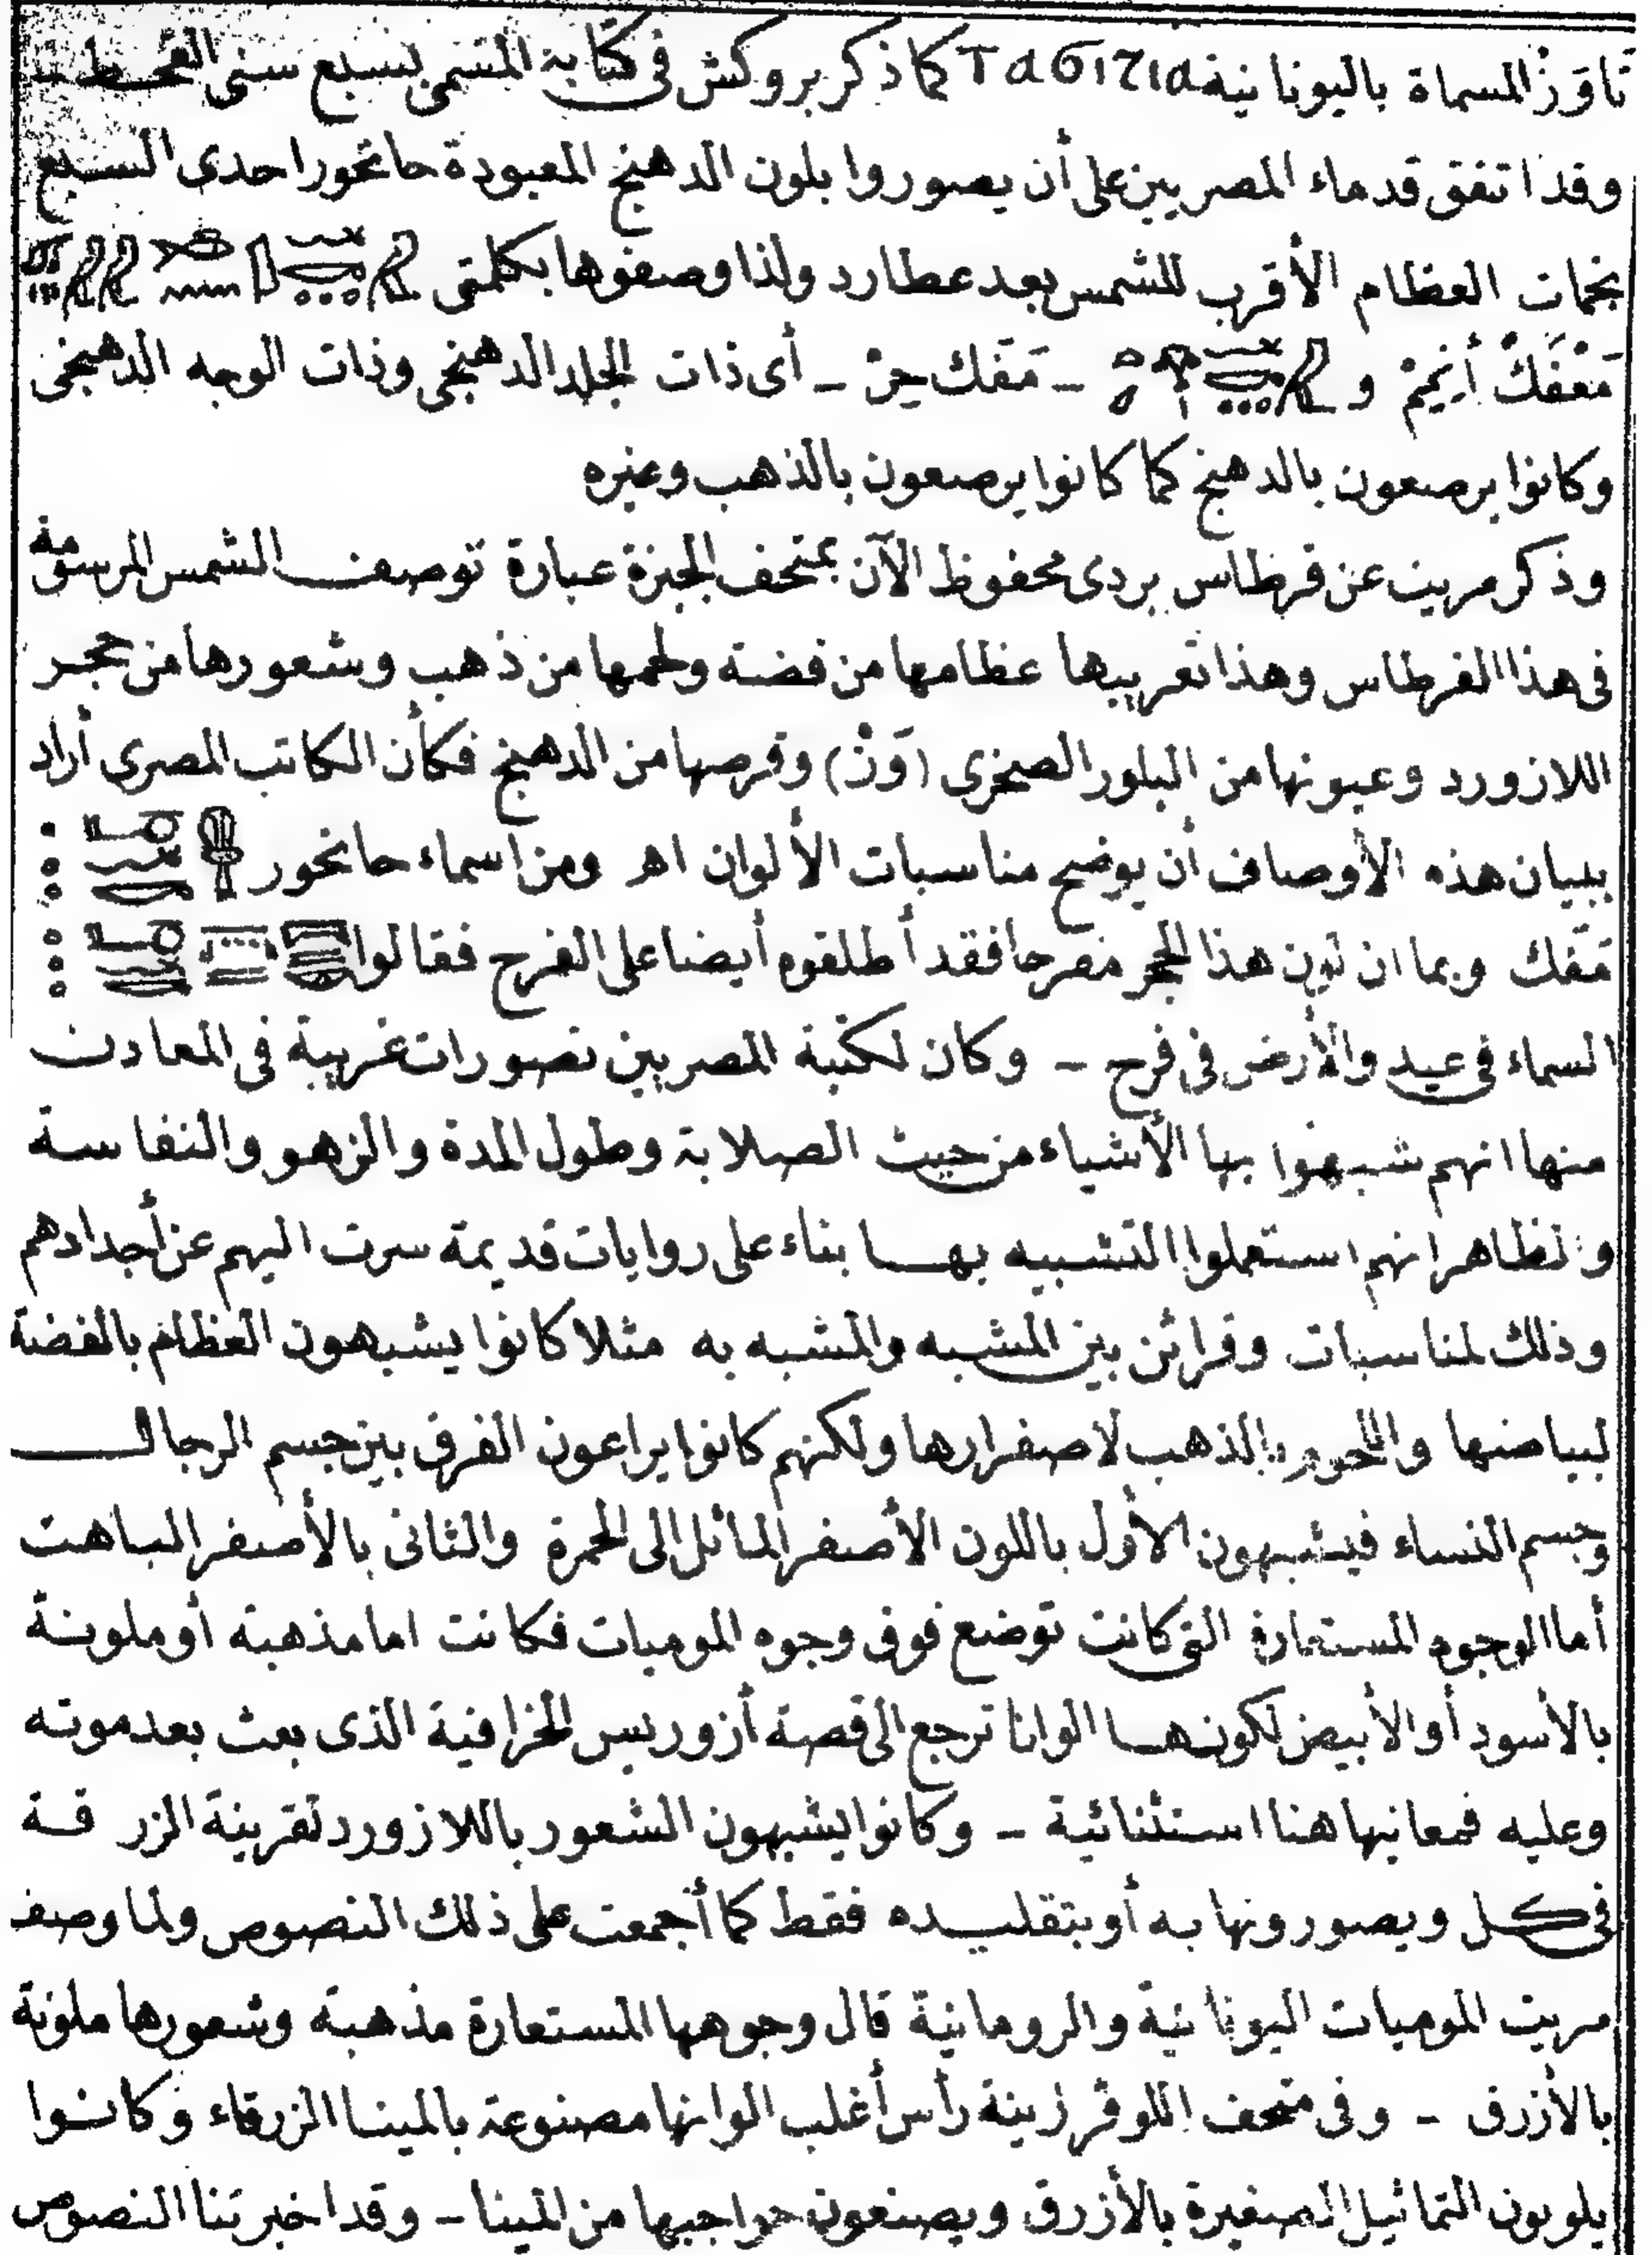 تاوَرْ المسماة باليونانية Ταϭιτια كما ذكر بروكش فى كتابه المسمى بسبع سنى القحط
وقد اتفق قدماء المصريين على أن يصوروا بلون الدهنج المعبودة حاتحور احدى السبع
نجمات العظام الأقرب للشمس بعد عطارد ولذا وصفوها بكلمتى
مَعْفَكْ أَنِيمْ و ــ مَفَك حِرْ ــ أى ذات الجلد الدهنجى وذات الوجه الدهنجى
وكانوا يرصعون بالدهنج كما كانوا يرصعون بالذهب وغيره
وذكر مريت عن قرطاس بردى محفوظ الآن بمتحف الجيزة عبارة توصف الشمس المرسومة
فى هذا القرطاس وهذا تعريبها عظامها من فضة ولحمها من ذهب وشعورها من حجر
اللازورد وعيونها من البلور الصخرى (وَنْ) وقرصها من الدهنج فكأن الكاتب المصرى أراد
ببيان هذه الأوصاف أن يوضح مناسبات الألوان اهـ ومن اسماء حاتحور
مَفَك وبما ان لون هذا الحجر مفرحا فقد أطلقوه أيضا على الفرح فقالوا
السماء فى عيد والأرض فى فرح ــ وكان لكتبة المصريين تصورات غريبة فى المعادن
منها انهم شبهوا بها الأشياء من حيث الصلابة وطول المدة والزهو والنفاسة
والظاهر انهم استعملوا التشبيه بها بناء على روايات قديمة سرت اليهم عن أجدادهم
وذلك لمناسبات وقرائن بين المشبه والمشبه به مثلا كانوا يشبهون العظام بالفضة
لبياضها واللحوم بالذهب لاصفرارها ولكنهم كانوا يراعون الفرق بين جسم الرجال
وجسم النساء فيشبهون الأول باللون الأصفر المائل الى الحمرة والثانى بالأصفر الباهت
أما الوجوه المستعارة التى كانت توضع فوق وجوه الموميات فكانت اما مذهبة أو ملونة
بالأسود أو الأبيض لكونها الوانا ترجع الى قصة أزوريس الخرافية الذى بعث بعد موته
وعليه فمعانيها هنا استثنائية ــ وكانوا يشبهون الشعور باللازورد لقرينة الزرقة
فى كل ويصورونها به أو بتقليده فقط كما أجمعت على ذلك النصوص ولما وصف
مريت الموميات اليونانية والرومانية قال وجوهها المستعارة مذهبة وشعورها ملونة
بالأزرق ــ وفى متحف اللوڤر زينة رأس أغلب الوانها مصنوعة بالمينا الزرقاء وكانوا
يلونون التماثيل الصغيرة بالأزرق ويصنعون حواجبها من المينا ــ وقد اخبرتنا النصوص